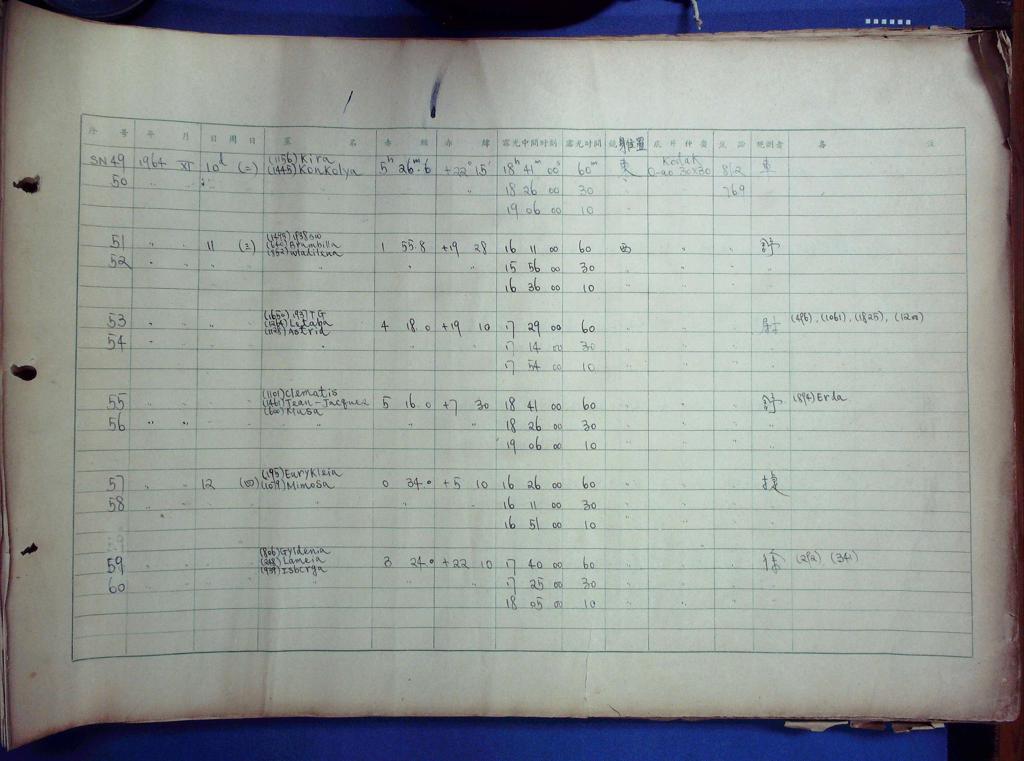 序 号 年 月 日 周日 星 名 赤 經 赤 緯 露光中間时刻 露光时间 鏡身位置 底片种类 焦 观测者 备 注
(1156) Kira
SN49 1964 XI 10d (二) (1445) Konkolya 5h 26m.6 +22° 15' 18h 41m 00s 60m 東 Kodak 0-a0 30x30 812
50 " " " 18 26 00 30 769
19 06 00 10
51 " " 11 (三) 1 55.8 +19 28 16 11 00 60 西 " "
(1640) Brambilla
(952) Wladilena
52 " " " " 15 56 00 30
16 36 00 10
(1650) 1937 TG
53 " " (1264) Letaba 4 18.0 +19 10 17 29 00 60 (496), (1061), (1825),
(1128) Astrid
54 " " " 17 14 00 30
17 54 00 10
(1101) Clematis
55 " " (1461) Jean-Jacques 5 16.0 +7 30 18 41 00 60 (894) Erda
(600) Musa
56 " " " " " 18 26 00 30
19 06 00 10
(195) Eurykleia
57 " " 12 (四) (1079) Mimosa 0 34.0 +5 10 16 26 00 60
58 " " " " 16 11 00 30
16 51 00 10
(806) Gyldenia
59 " " (248) Lameia 3 24.0 +22 10 17 40 00 60 (292) (341)
(939) Isberga
60 " " " " 17 25 00 30
18 05 00 10